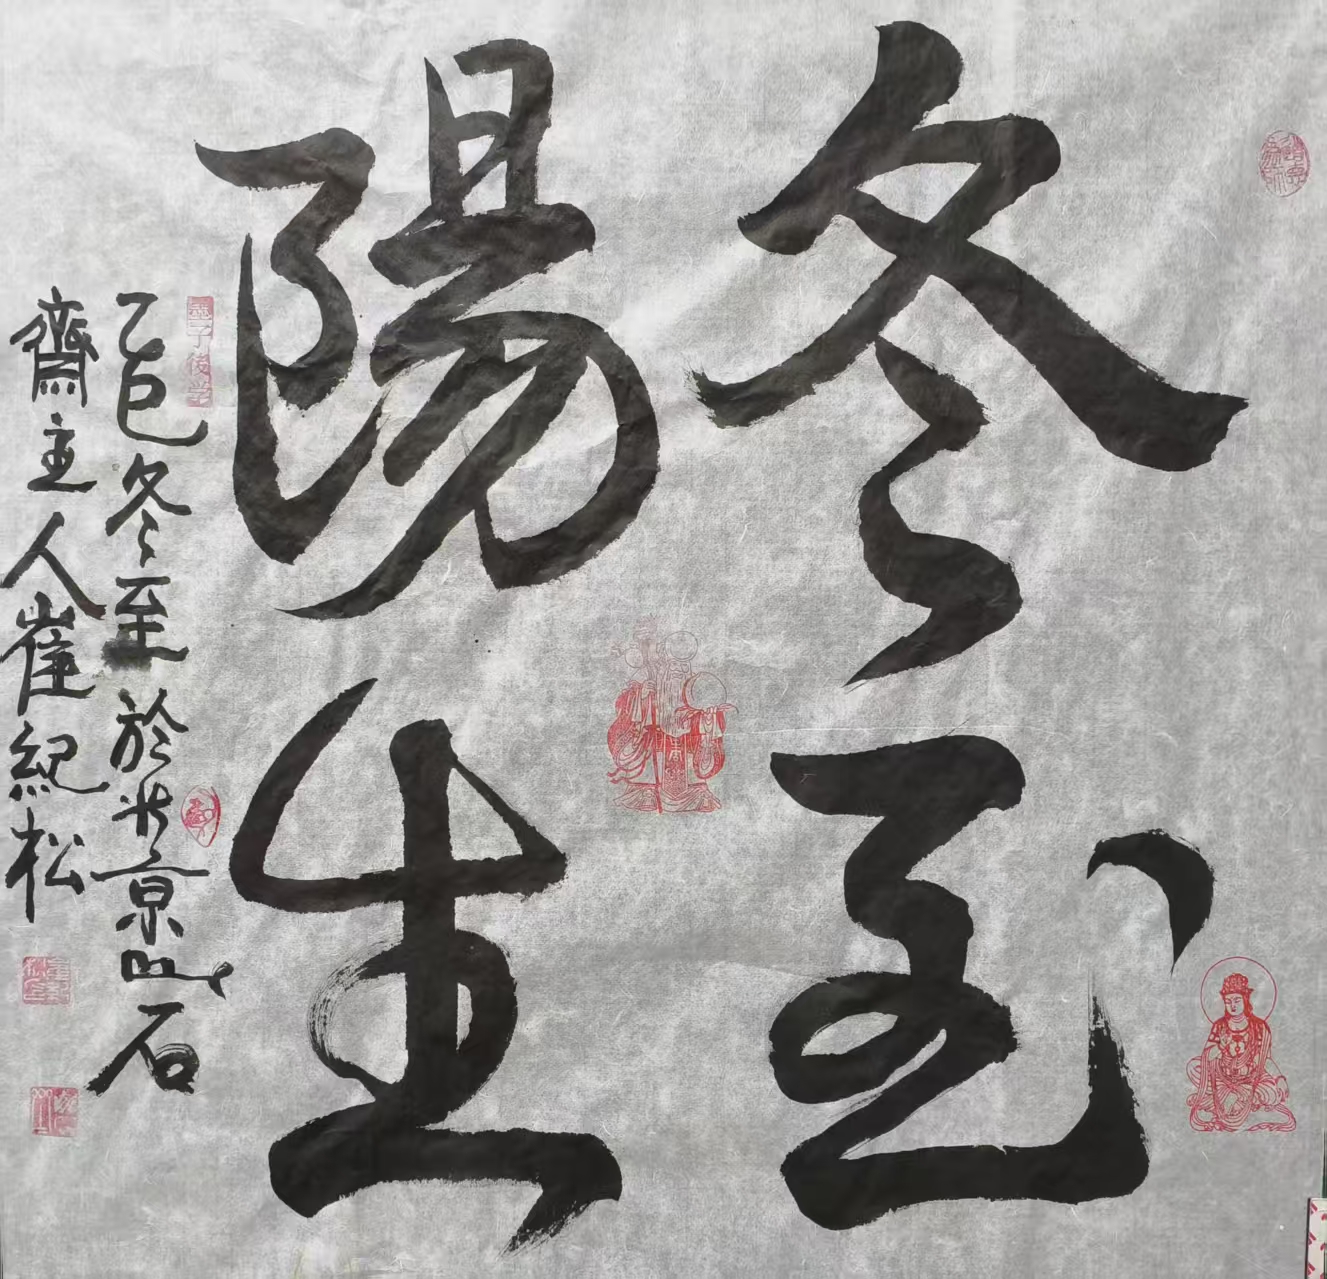 冬至
陽生
乙巳冬至於北京山石
齋主人崔紀松